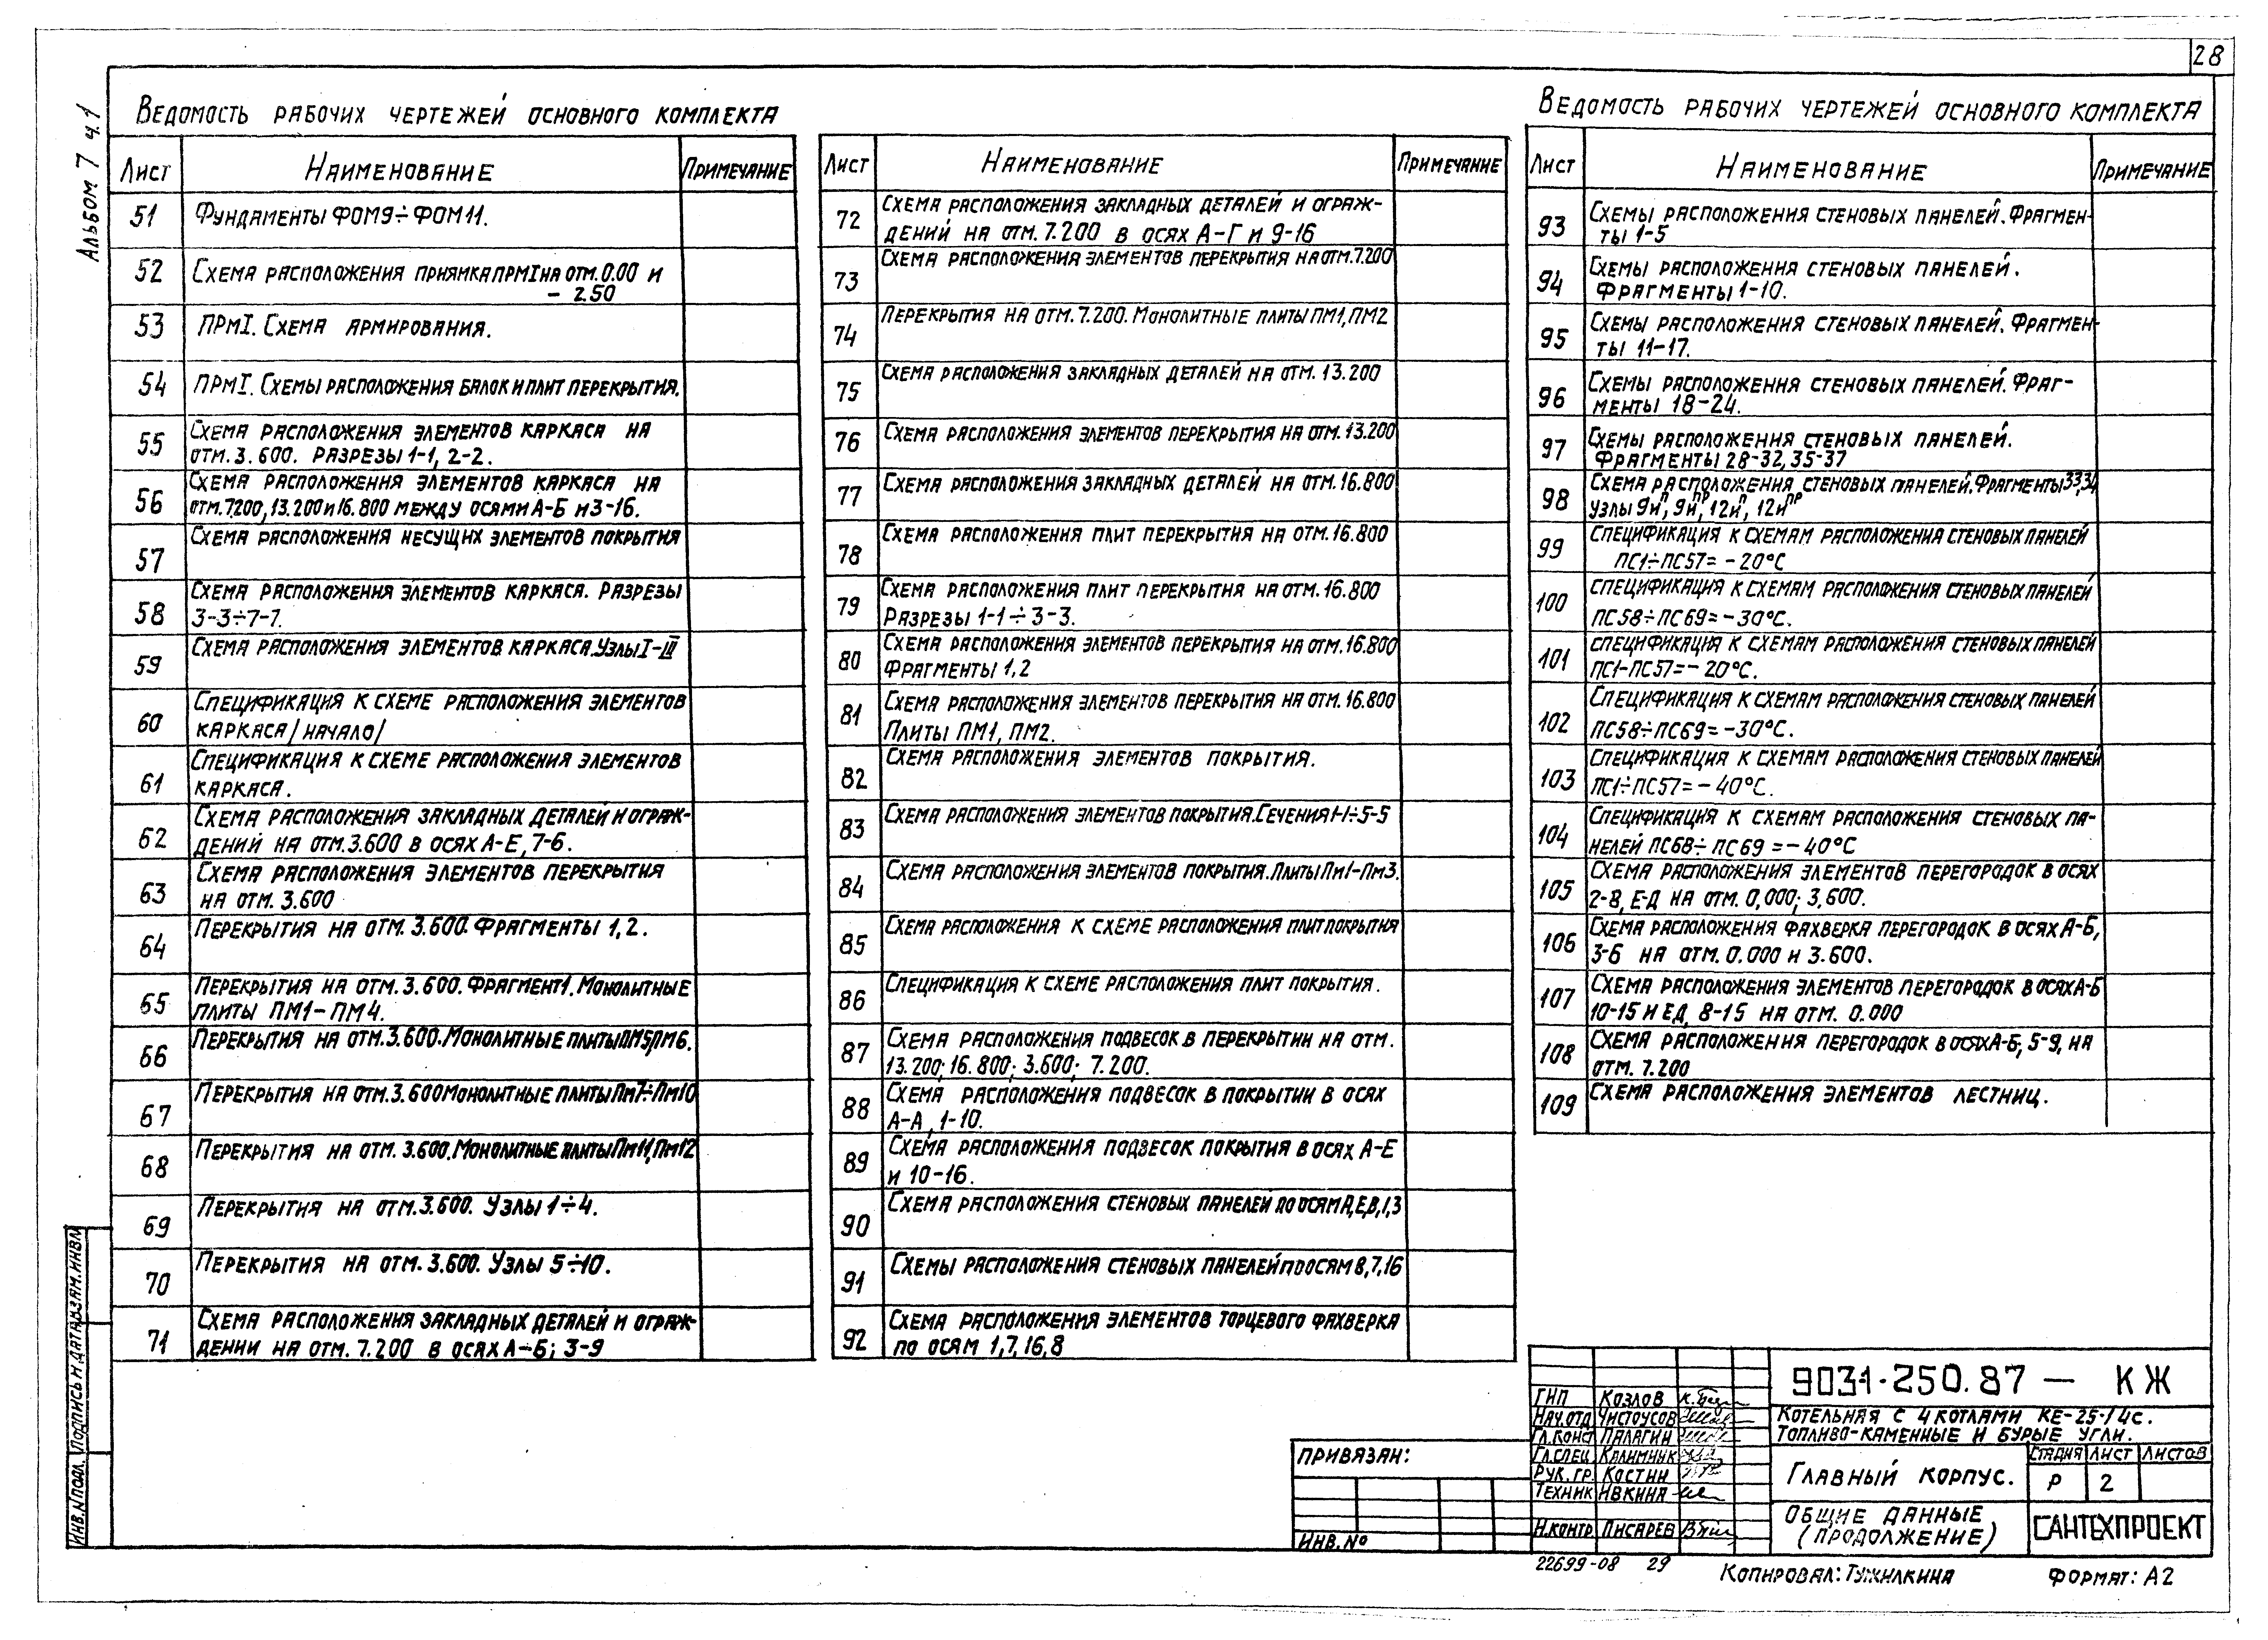 28
Альбом 7 ч.1
Ведомость рабочих чертежей основного комплекта
Лист Наименование Примечание
51 Фундаменты ФОМ9÷ФОМ11.
52 Схема расположения приямка ПРМI на отм. 0.00 и
- 2.50
53 ПРМI. Схема армирования.
54 ПРМI. Схемы расположения балок и плит перекрытия.
55 Схема расположения элементов каркаса на
отм. 3.600. Разрезы 1-1, 2-2.
56 Схема расположения элементов каркаса на
отм. 7.200, 13.200 и 16.800 между осями А-Б и 3-16.
57 Схема расположения несущих элементов покрытия
58 Схема расположения элементов каркаса. Разрезы
3-3÷7-7.
59 Схема расположения элементов каркаса. Узлы I-III
60 Спецификация к схеме расположения элементов
каркаса /начало/
61 Спецификация к схеме расположения элементов
каркаса.
62 Схема расположения закладных деталей и ограж-
дений на отм. 3.600 в осях А-Е, 7-6.
63 Схема расположения элементов перекрытия
на отм. 3.600
64 Перекрытия на отм. 3.600. Фрагменты 1, 2.
65 Перекрытия на отм. 3.600. Фрагмент 1. Монолитные
плиты ПМ1-ПМ4.
66 Перекрытия на отм. 3.600. Монолитные плиты ПМ5, ПМ6.
67 Перекрытия на отм. 3.600 Монолитные плиты Пм7÷Пм10
68 Перекрытия на отм. 3.600. Монолитные плиты Пм11, Пм12
69 Перекрытия на отм. 3.600. Узлы 1÷4.
70 Перекрытия на отм. 3.600. Узлы 5÷10.
71 Схема расположения закладных деталей и ограж-
дении на отм. 7.200 в осях А-Б; 3-9
Лист Наименование Примечание
72 Схема расположения закладных деталей и ограж-
дений на отм. 7.200 в осях А-Г и 9-16
73 Схема расположения элементов перекрытия на отм. 7.200
74 Перекрытия на отм. 7.200. Монолитные плиты ПМ1, ПМ2
75 Схема расположения закладных деталей на отм. 13.200
76 Схема расположения элементов перекрытия на отм. 13.200
77 Схема расположения закладных деталей на отм. 16.800
78 Схема расположения плит перекрытия на отм. 16.800
79 Схема расположения плит перекрытия на отм. 16.800
Разрезы 1-1÷3-3.
80 Схема расположения элементов перекрытия на отм. 16.800
Фрагменты 1, 2
81 Схема расположения элементов перекрытия на отм. 16.800
Плиты ПМ1, ПМ2.
82 Схема расположения элементов покрытия.
83 Схема расположения элементов покрытия. Сечения 1-1÷5-5
84 Схема расположения элементов покрытия. Плиты Пм1-Пм3.
85 Схема расположения к схеме расположения плит покрытия
86 Спецификация к схеме расположения плит покрытия.
87 Схема расположения подвесок в перекрытии на отм.
13.200; 16.800; 3.600; 7.200.
88 Схема расположения подвесок в покрытии в осях
А-А, 1-10.
89 Схема расположения подвесок покрытия в осях А-Е
и 10-16.
90 Схема расположения стеновых панелей по осям А,Е,В,1,3
91 Схемы расположения стеновых панелей по осям 8, 7, 16
92 Схема расположения элементов торцевого фахверка
по осям 1, 7, 16, 8
Ведомость рабочих чертежей основного комплекта
Лист Наименование Примечание
93 Схемы расположения стеновых панелей. Фрагмен-
ты 1-5
94 Схемы расположения стеновых панелей.
Фрагменты 1-10.
95 Схемы расположения стеновых панелей. Фрагмен-
ты 11-17.
96 Схемы расположения стеновых панелей. Фраг-
менты 18-24.
97 Схемы расположения стеновых панелей.
Фрагменты 28-32, 35-37
98 Схема расположения стеновых панелей. Фрагменты 33,34
Узлы 9иП, 9иПР, 12иП, 12иПР
99 Спецификация к схемам расположения стеновых панелей
ПС1÷ПС57= -20°С
100 Спецификация к схемам расположения стеновых панелей
ПС58÷ПС69= -30°С.
101 Спецификация к схемам расположения стеновых панелей
ПС1-ПС57= -20°С.
102 Спецификация к схемам расположения стеновых панелей
ПС58÷ПС69= -30°С.
103 Спецификация к схемам расположения стеновых панелей
ПС1÷ПС57= -40°С.
104 Спецификация к схемам расположения стеновых па-
нелей ПС68÷ПС69 = -40°С
105 Схема расположения элементов перегородок в осях
2-8, Е-Д на отм. 0,000; 3,600.
106 Схема расположения фахверка перегородок в осях А-Б,
3-6 на отм. 0.000 и 3.600.
107 Схема расположения элементов перегородок в осях А-Б
10-15 и Е,Д, 8-15 на отм. 0.000
108 Схема расположения перегородок в осях А-Б, 5-9, на
отм. 7.200
109 Схема расположения элементов лестниц.
Инв.№подл. Подпись и дата Взам.инв.№
Привязан:
Инв.№
ГИП Козлов
Нач.отд Чистоусов
Гл.конс Палагин
Гл.спец Калимчук
Рук.гр. Костин
Техник Ивкина
Н.контр Писарев
9031-250.87 — КЖ
Котельная с 4 котлами КЕ-25-14с.
Топливо-каменные и бурые угли.
Главный корпус.
Стадия Лист Листов
Р 2
Общие данные
(продолжение)
САНТЕХПРОЕКТ
22699-08 29
Копировал: Тужилкина
Формат: А2